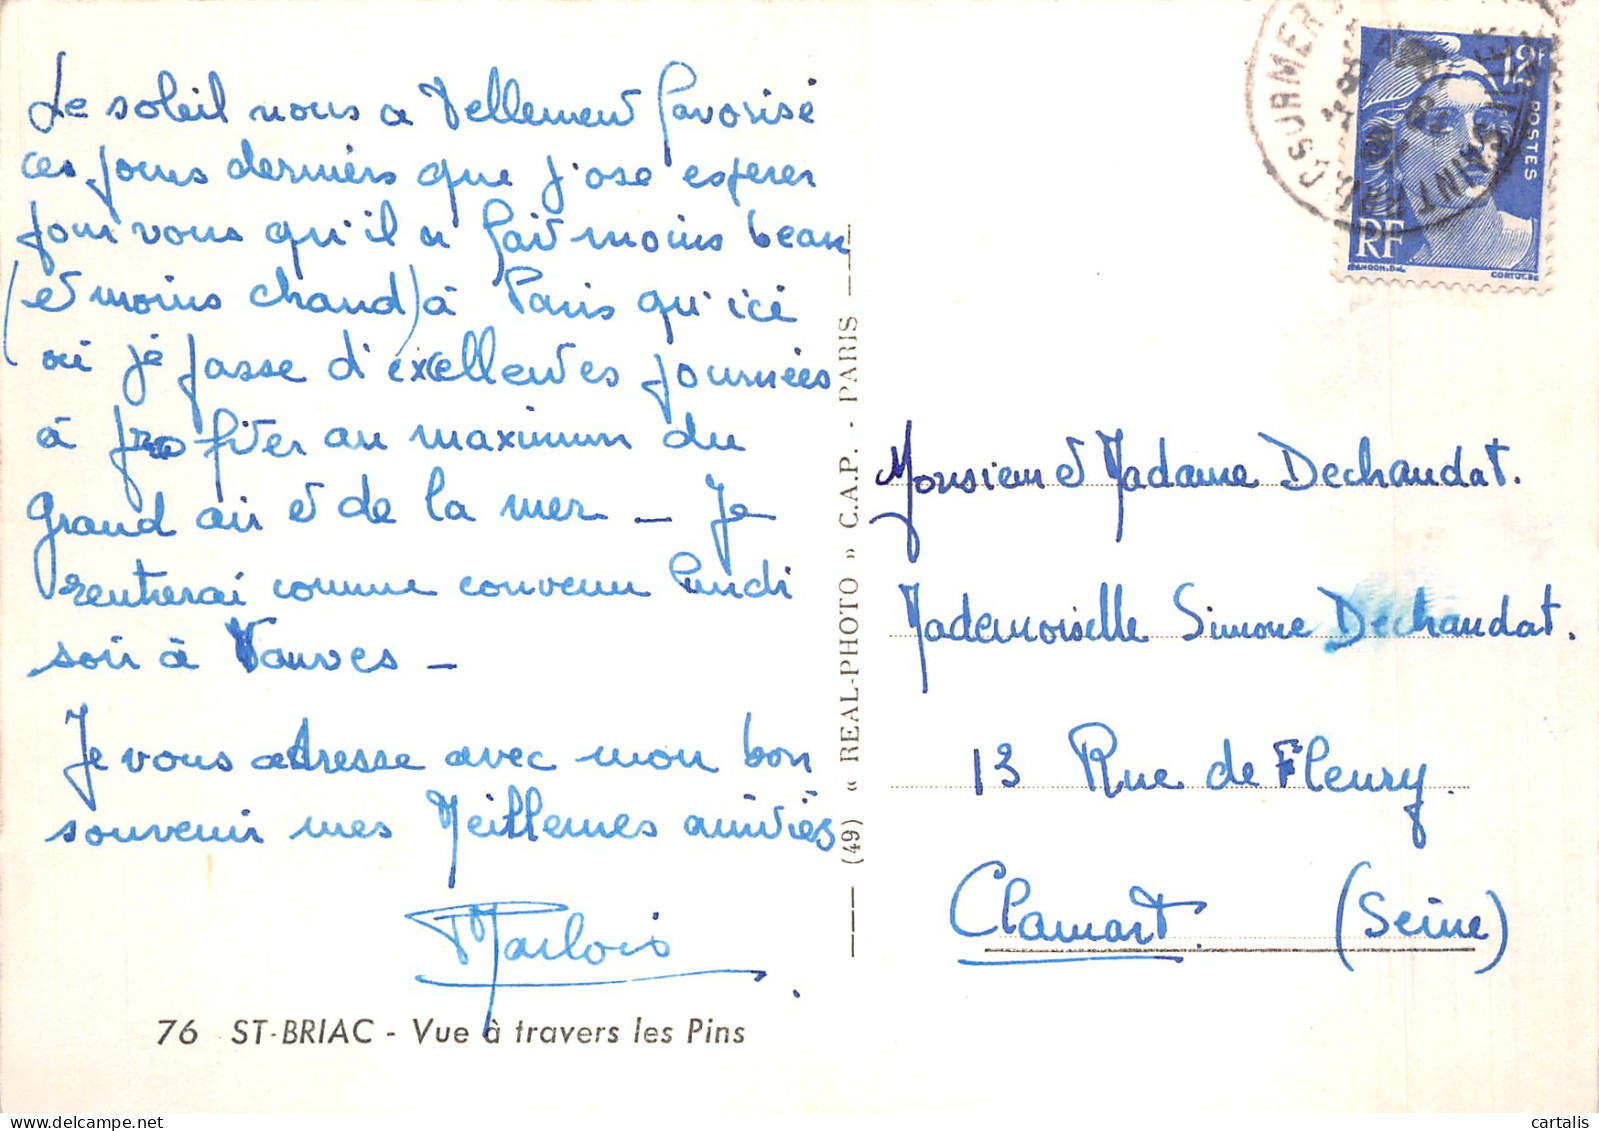 Le soleil nous a tellement favorisé
ces jours derniers que j'ose esperer
pour vous qu'il a fait moins beau
(et moins chaud) à Paris qu'ici
où je passe d'excellentes journées
à profiter au maximum du
grand air et de la mer — Je
rentrerai comme convenu lundi
soir à Vanves —
Je vous adresse avec mon bon
souvenir mes meilleures amitiés
Marlois
76 ST-BRIAC - Vue à travers les Pins
(49) « REAL-PHOTO » C.A.P. - PARIS
12F
POSTES
RF
GANDON.DEL
CORTOT.SC
SAINT BRIAC SUR MER
Monsieur et Madame Dechaudat.
Mademoiselle Simone Dechaudat.
13 Rue de Fleury.
Clamart. (Seine)
cartalis